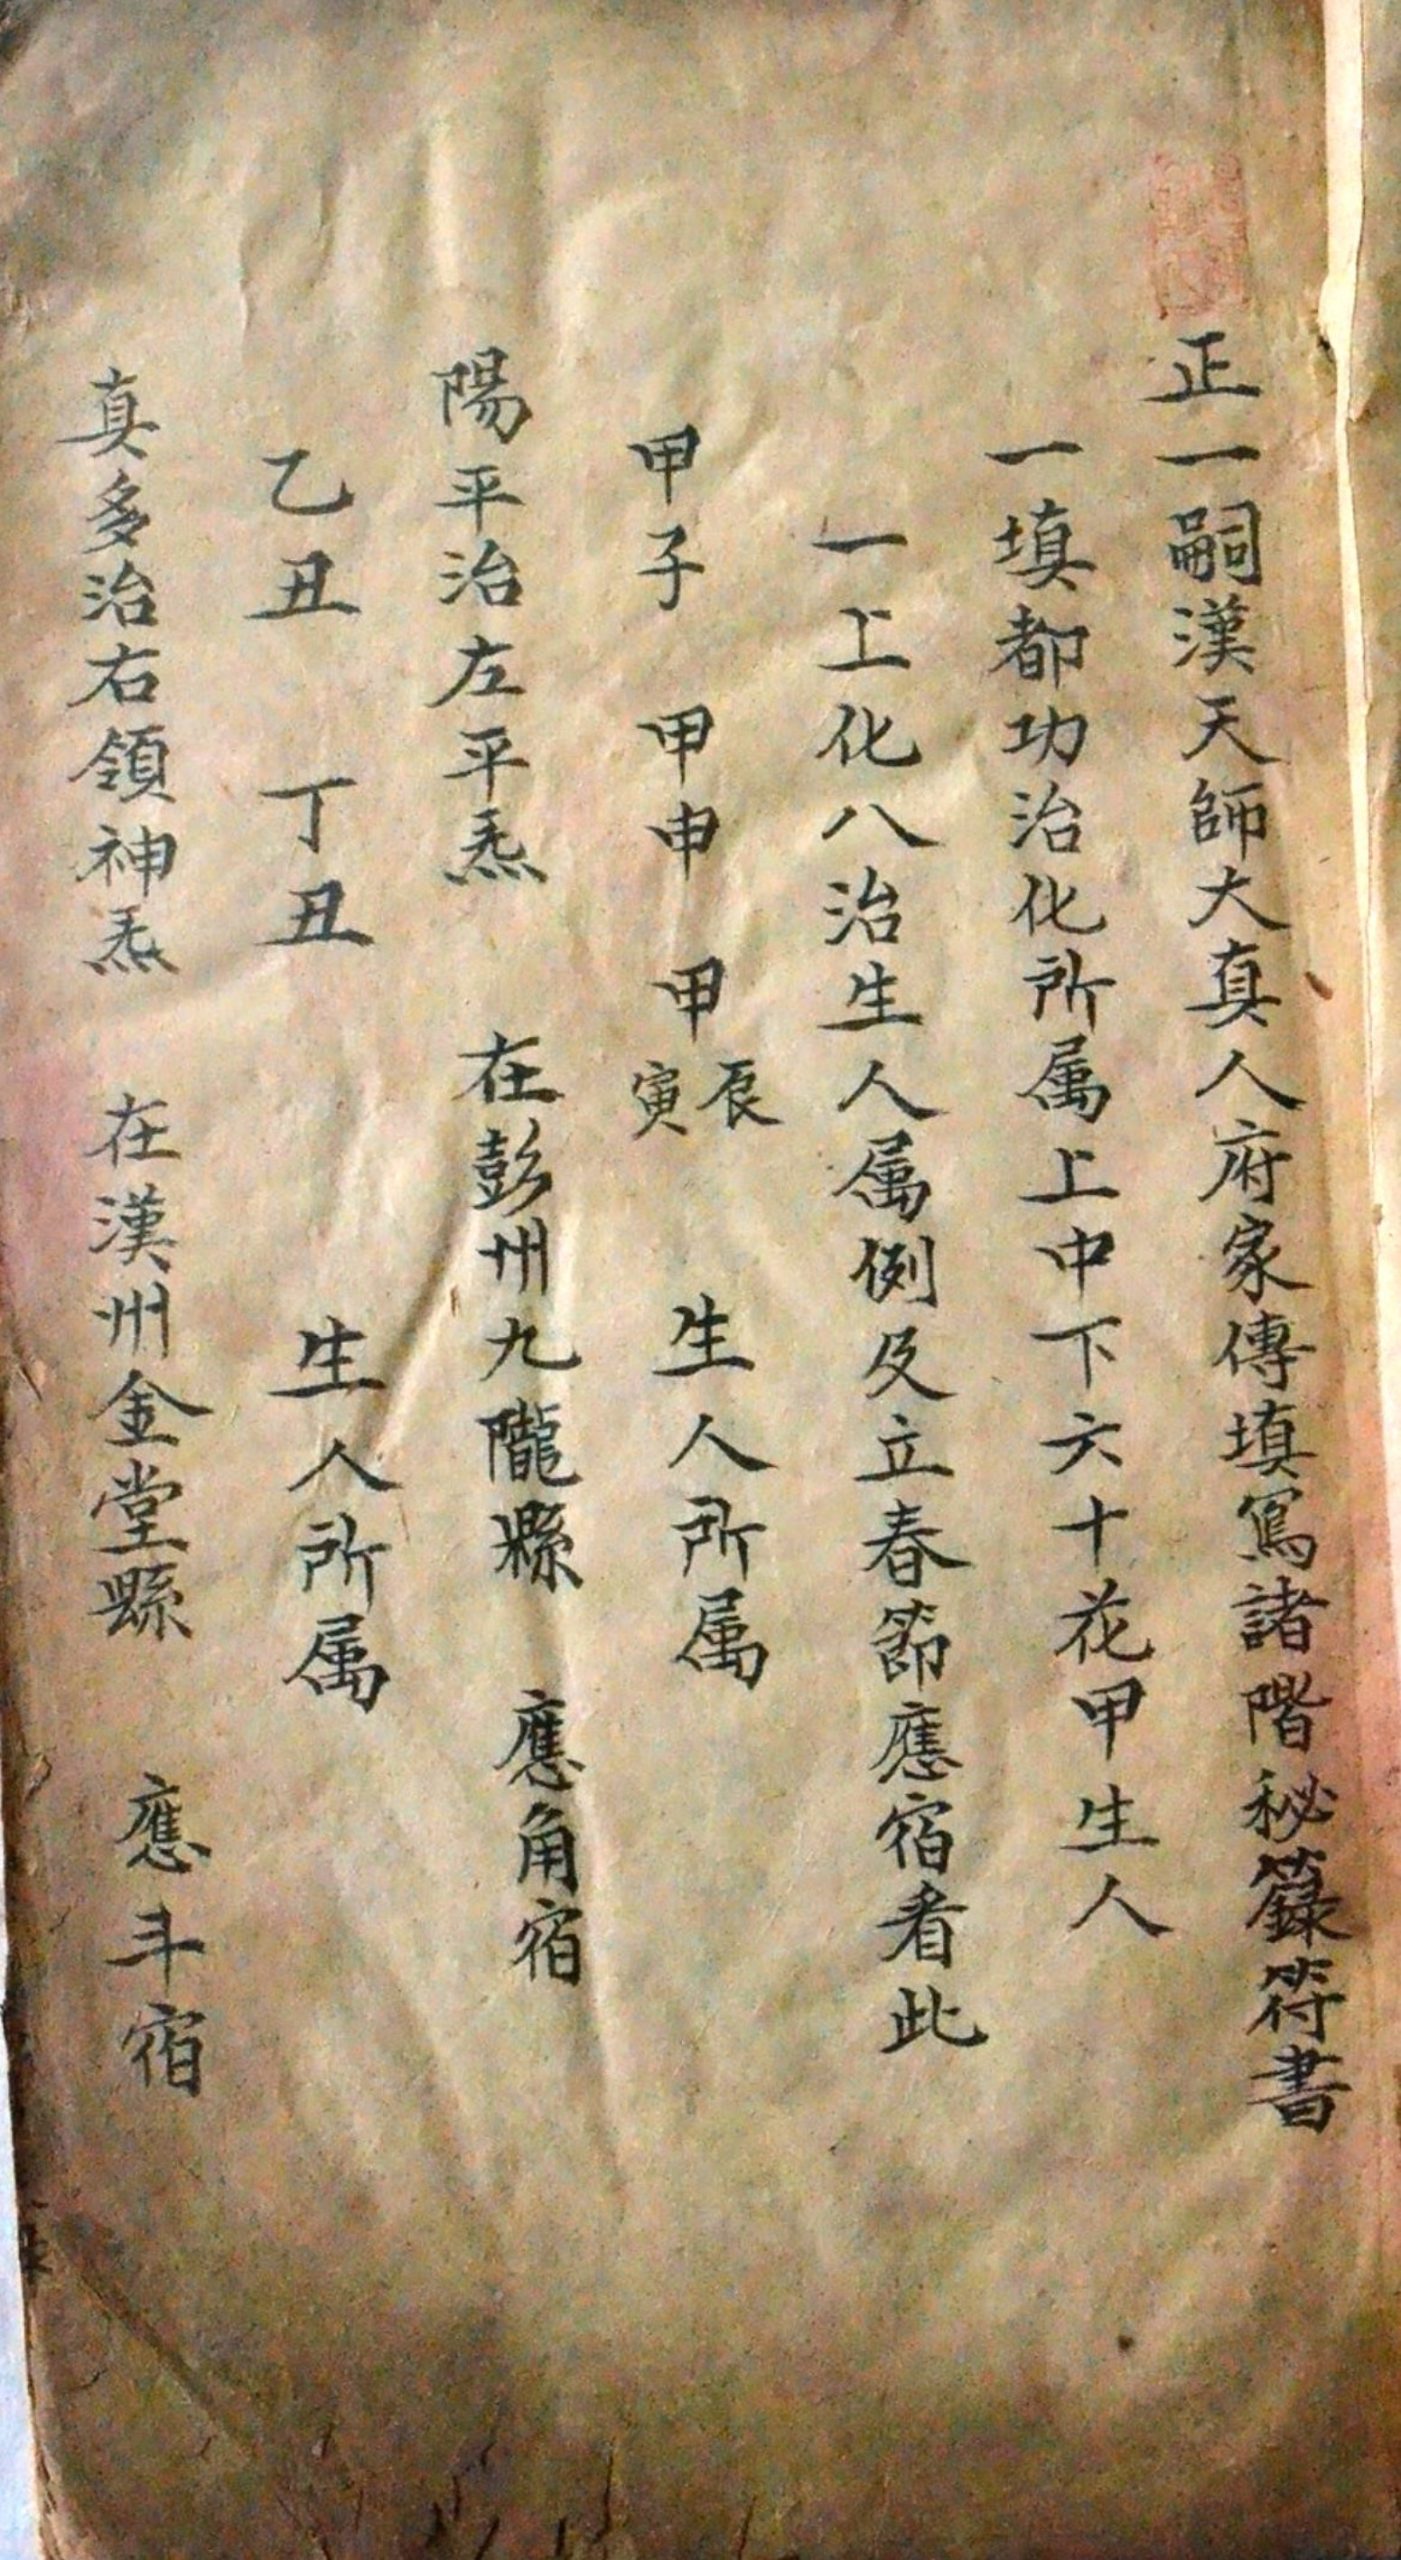 正一嗣漢天師大真人府家傳填寫諸階秘籙符書
一填都功治化所属上中下六十花甲生人
一上化八治生人属例及立春節應宿看此
甲子 甲申 甲辰寅 生人所属
陽平治左平炁 在彭州九隴縣 應角宿
乙丑 丁丑 生人所属
真多治右領神炁 在漢州金堂縣 應斗宿